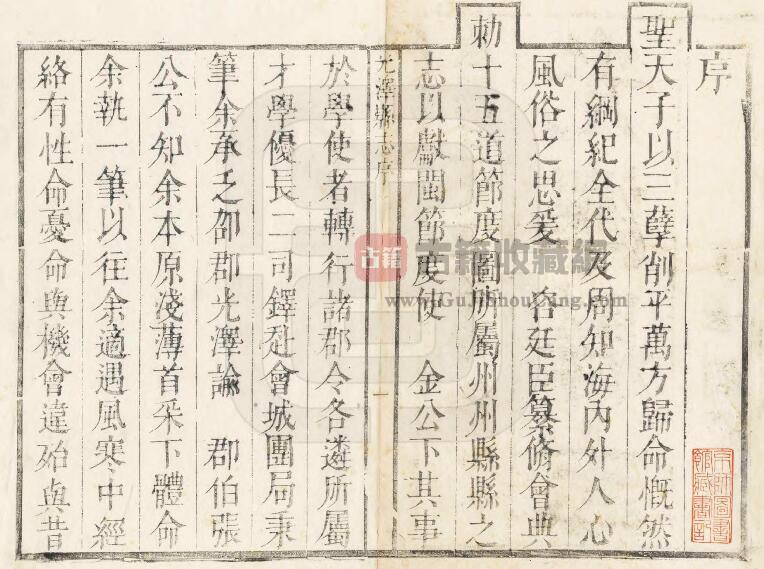 序
聖天子以三孽削平萬方歸命慨然
有綱紀全代及周知海内外人心
風俗之思爰 召廷臣纂修會典
勅十五道節度圖所屬州州縣縣之
志以獻閩節度使 金公下其事
光澤縣志序
一
於學使者轉行諸郡令各遴所屬
才學優長二司鐸赴會城團局秉
筆余承乏邵郡光澤諭 郡伯張
公不知余本原淺薄首采下體命
余執一筆以往余適遇風寒中經
絡有性命憂命與機會違殆與昔
京師圖書館藏書記
古籍
古籍收藏網
www.GujiShouCang.com